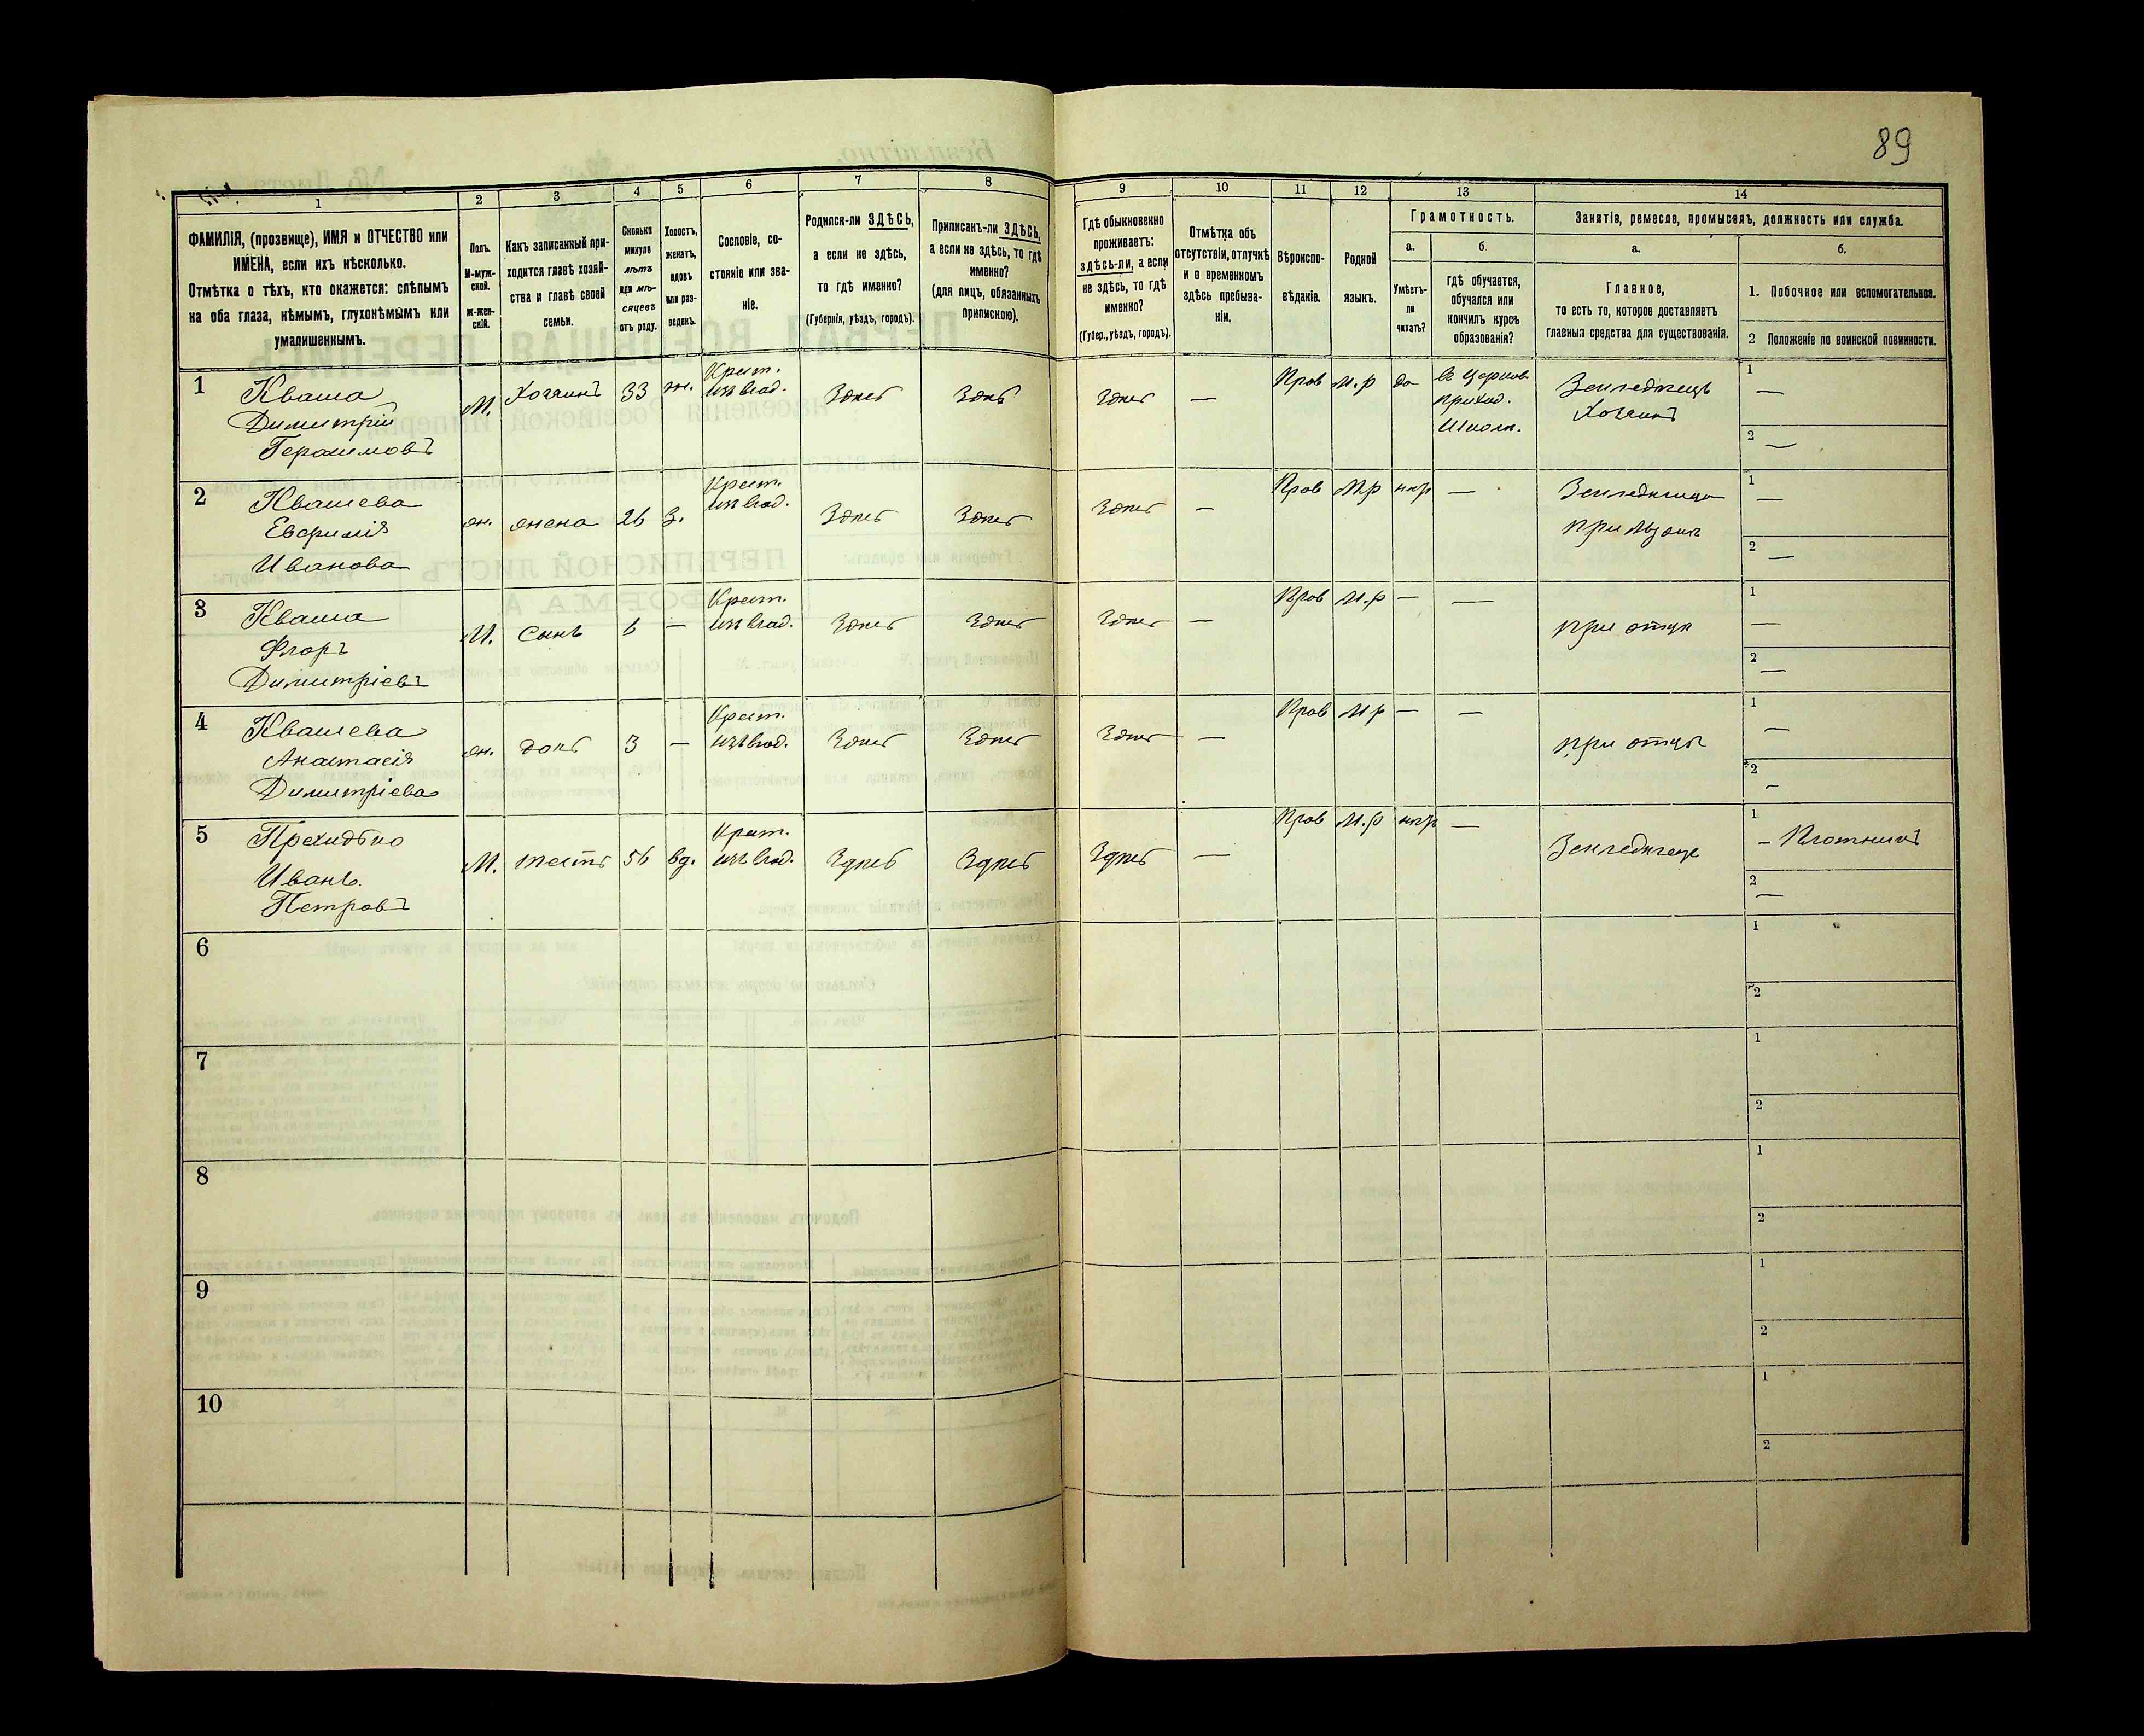 89
1 2 3 4 5 6 7 8 9 10 11 12 13 14
ФАМИЛІЯ, (прозвище), ИМЯ и ОТЧЕСТВО или
ИМЕНА, если ихъ нѣсколько.
Отмѣтка о тѣхъ, кто окажется: слѣпымъ
на оба глаза, нѣмымъ, глухонѣмымъ или
умалишеннымъ.
Полъ.
М-муж-
ской.
Ж-жен-
скій.
Какъ записанный при-
ходится главѣ хозяй-
ства и главѣ своей
семьи.
Сколько
минуло
лѣтъ
или мѣ-
сяцевъ
отъ роду.
Холостъ,
женатъ,
вдовъ
или раз-
веденъ.
Сословіе, со-
стояніе или зва-
ніе.
Родился-ли ЗДѢСЬ,
а если не здѣсь,
то гдѣ именно?
(Губернія, уѣздъ, городъ).
Приписанъ-ли ЗДѢСЬ,
а если не здѣсь, то гдѣ
именно?
(для лицъ, обязанныхъ
припискою).
Гдѣ обыкновенно
проживаетъ:
здѣсь-ли, а если
не здѣсь, то гдѣ
именно?
(Губер., уѣздъ, городъ).
Отмѣтка объ
отсутствіи, отлучкѣ
и о временномъ
здѣсь пребыва-
ніи.
Вѣроиспо-
вѣданіе.
Родной
языкъ.
Грамотность.
а.
Умѣетъ-
ли
читать?
б.
гдѣ обучается,
обучался или
кончилъ курсъ
образованія?
Занятіе, ремесло, промыселъ, должность или служба.
а.
Главное,
то есть то, которое доставляетъ
главныя средства для существованія.
б.
1. Побочное или вспомогательное.
2 Положеніе по воинской повинности.
1 Кваша
Димитрій
Герасимовъ
М. Хозяинъ 33 ж.
Крест.
изъ влад.
Здѣсь Здѣсь Здѣсь — Прав М.р да
Въ церков.
приход.
школѣ.
Земледѣлецъ
Хозяинъ
1 —
2 —
2 Квашева
Евфимія
Иванова
ж. жена 26 з.
Крест.
изъ влад.
Здѣсь Здѣсь Здѣсь — Прав М.р —
Земледѣлица
при мужѣ
1 —
2 —
3 Кваша
Флоръ
Димитріевъ
М. сынъ 6 —
Крест.
изъ влад.
Здѣсь Здѣсь Здѣсь — Прав М.р — —
при отцѣ
1 —
2 —
4 Квашева
Анастасія
Димитріева
ж. дочь 3 —
Крест.
изъ влад.
Здѣсь Здѣсь Здѣсь — Прав М.р — —
при отцѣ
1 —
2 —
5
Иванъ.
Петровъ
М. тесть 56 вд.
Крест.
изъ влад.
Здѣсь Здѣсь Здѣсь — Прав М.р —
Земледѣлецъ
1 — Плотникъ
2 —
6
1
2
7
1
2
8
1
2
9
1
2
10
1
2